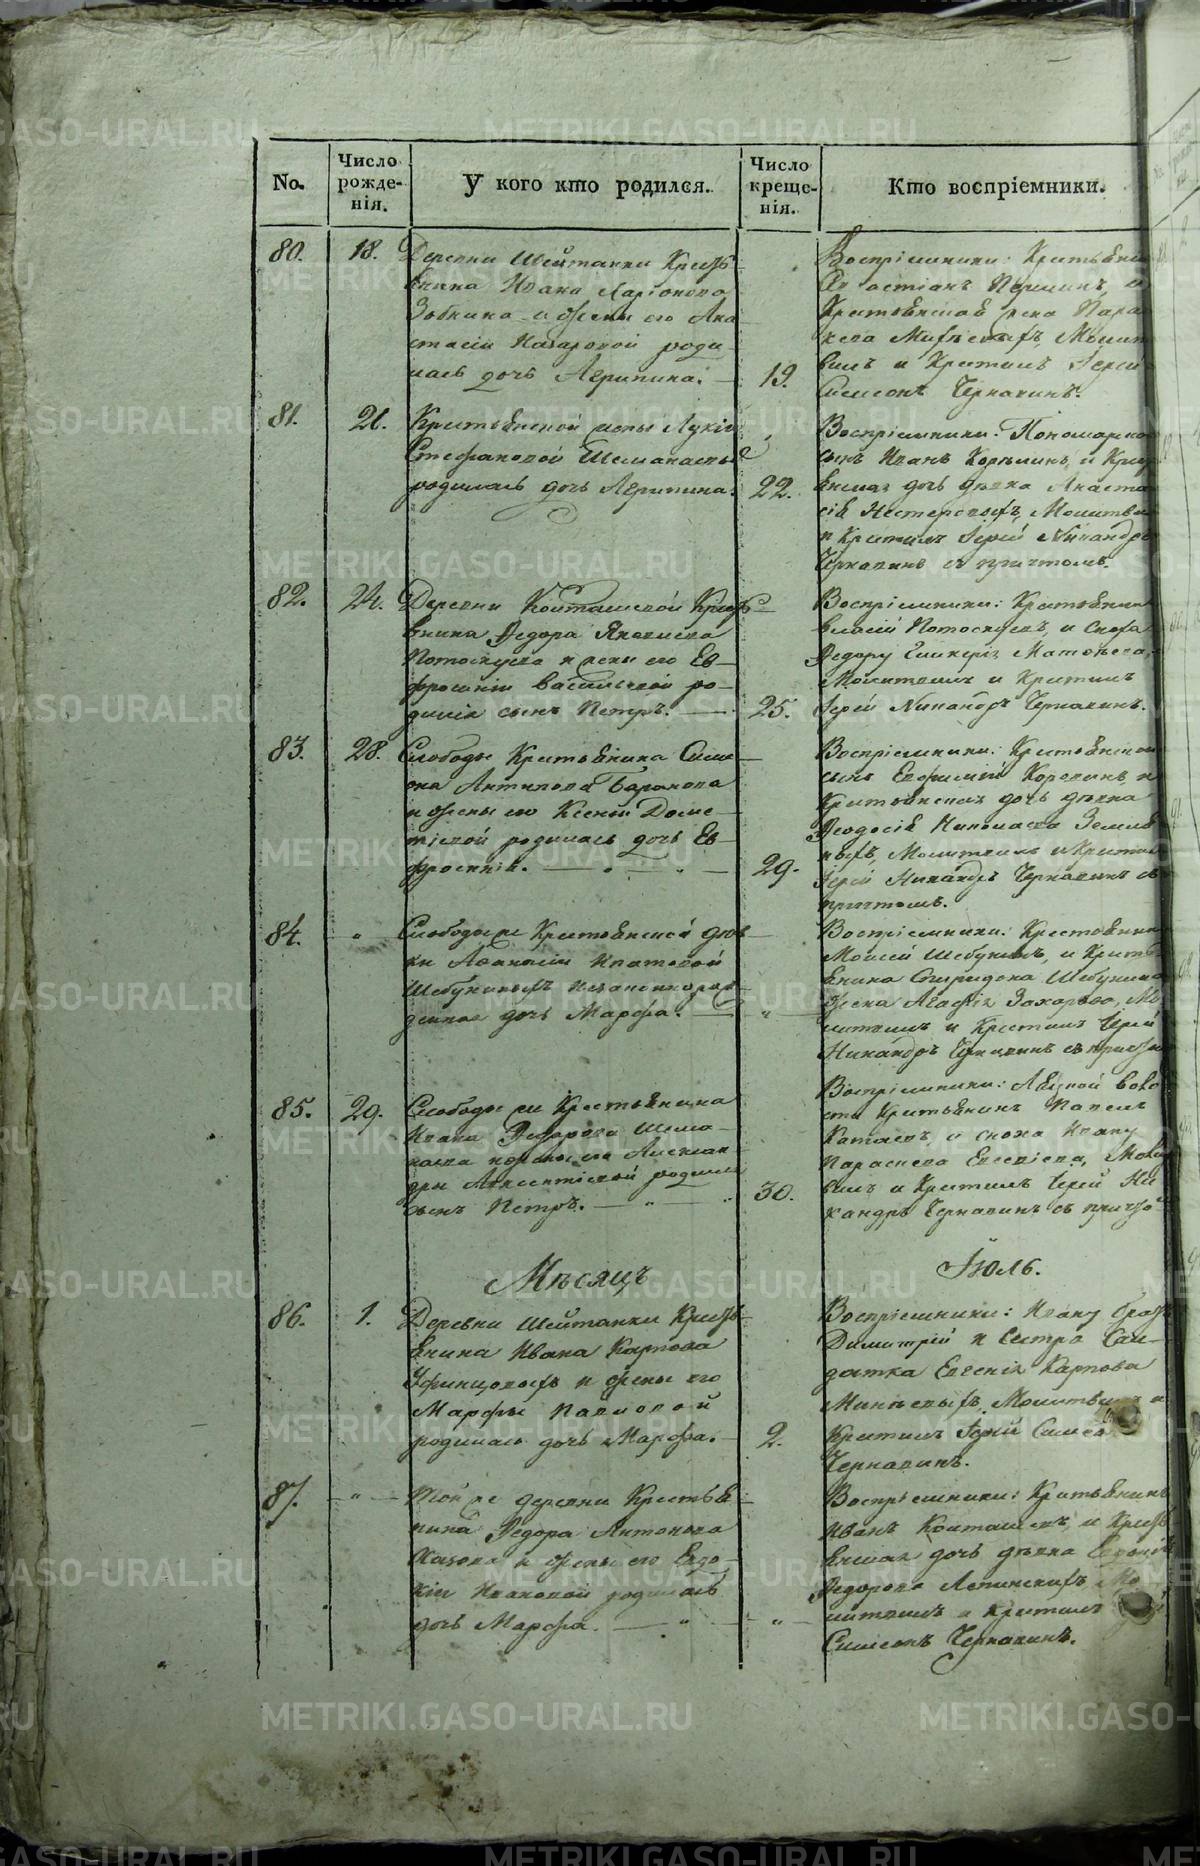 No.
Число рожде-нія.
У кого кто родился.
Число креще-нія.
Кто воспріемники.
80.
18.
Деревни Шейтанки Кресть
янина Ивана Ларіонова
Зобнина и жены его Ана
стасіи Назаровой роди
лась дочь Агрипина.
19.
Воспріемники: Крестьянин
Севастіанъ и
Крестьянская жена Пара
кева Молит
вилъ и Крестилъ Іерей
Симеонъ Чернавинъ.
81.
21.
Крестьянской жены Лукіи
Стефановой
родилась дочь Агрипина.
22.
Воспріемники: Пономарской
сынъ Иванъ и Крес
янская дочь девка Анаста
сія Нестеровыхъ, Молитви
и Крестилъ Іерей Никандръ
Чернавинъ съ причтомъ.
82.
24.
Деревни Колташевой Кресть
янина Ѳедора Яковлева
Потоскуева и жены его Ев
фросиніи Васильевой ро-
дился сынъ Петръ.
25.
Воспріемники: Крестьянинъ
Власій Потоскуевъ, и Сноха
Ѳедору Гликерія Матвѣева,
Молитвилъ и Крестилъ
Іерей Никандръ Чернавинъ.
83.
28.
Слободы Крестьянина Симе
она Антипова
и жены его Ксеніи Доме-
тіевой родилась дочь Ев-
фросинія.
29.
Воспріемники: Крестьянской
сынъ Евфимій и
Крестьянская дочь девка
Ѳеодосія Земля
ныхъ, Молитвилъ и Крестил
Іерей Никандръ Чернавинъ съ
причтомъ.
84.
"
Слободы же Крестьянской дѣв
ки Аѳанасіи Ипатовой
Шебуниныхъ незаконнорож
денная дочь Марфа.
"
Воспріемники: Крестьянинъ
Моисей Шебунинъ, и Кресть
янина Спиридона Шебунина
жена Агафія Захарова, Мо
литвилъ и Крестилъ Іерей
Никандръ Чернавинъ съ причто
85.
29.
Слободы же Крестьянина
Ивана Ѳедорова Шема-
наева и жены его Алексан
дры Авксентіевой родился
сынъ Петръ.
30.
Воспріемники: воло
сти Крестьянинъ Павелъ
Катаевъ, и сноха Ивану
Параскева Евсевіева, Моли
вилъ и Крестилъ Іерей Ни
кандръ Чернавинъ съ причто
Мѣсяцъ
Іюль.
86.
1.
Деревни Шейтанки Кресть
янина Ивана Карпова
и жены его
Марфы Павловой
родилась дочь Марфа.
2.
Воспріемники: Ивану братъ
Димитрій и Сестра Сол-
датка Евгенія Карпова
Минѣевыхъ, Молитвилъ и
Крестилъ Іерей Симео
Чернавинъ.
87.
"
Той же деревни Крестья
нина Ѳедора Антонова
и жены его Евдо-
кіи Ивановой родилась
дочь Марфа.
"
Воспріемники: Крестьянинъ
Иванъ Колташевъ, и Кресть
янская дочь дѣвка
Ѳедорова Липинскихъ, Мо
литвилъ и Крестилъ
Симеонъ Чернавинъ.
METRIKI.GASO-URAL.RU